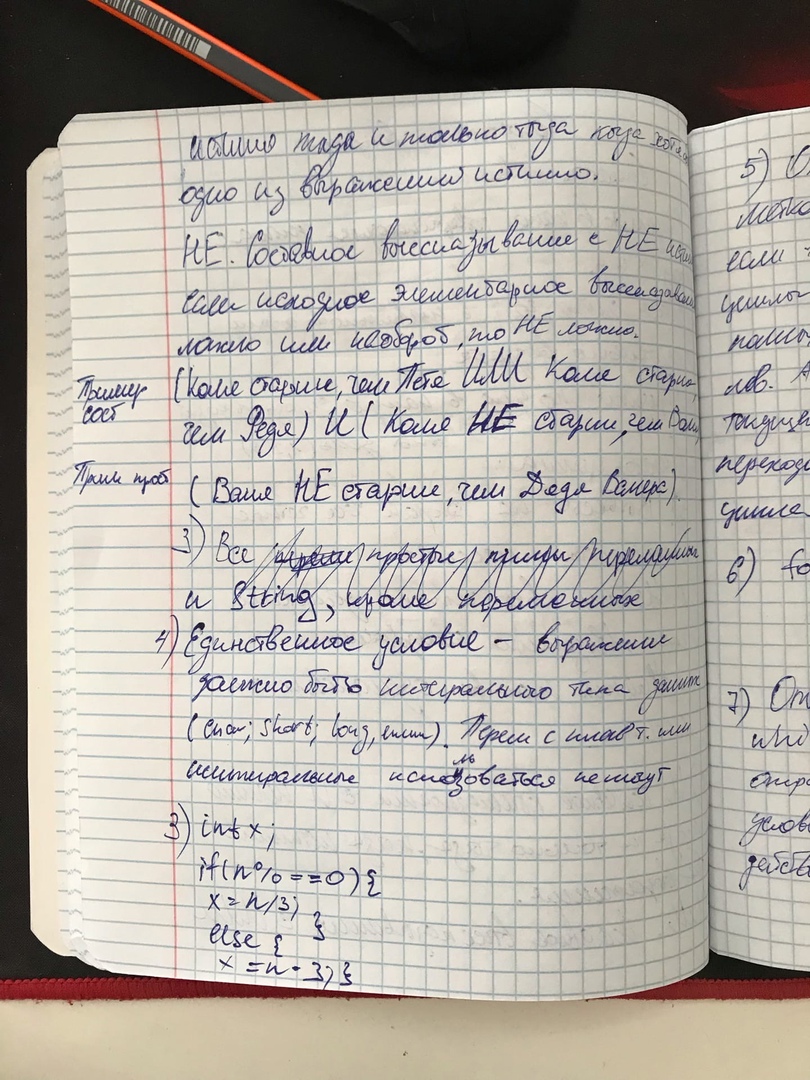 истино тогда и только тогда когда хотя
одно из выражений истинно.
НЕ. Составное высказывание с НЕ
если исходное элементарное высказыван
ложно или наоборот, то НЕ ложно.
Пример сост
(Коля старше, чем Петя ИЛИ Коля старше,
чем Федя) И (Коля НЕ старше, чем Вани
Прим прост
(Ваня НЕ старше, чем Дядя Валера)
3) Все простые
и String, кроме
4) Единственное условие – выражение
должно быть интегрального типа данных
(char; short; long, enum). Перем с плав т. или
использоваться не могут
3) int x;
if(n% ==0) {
x = n/3; }
else {
x = n - 3; }
5)
если
помощ
текущ
переход
цикла
6) fo
7)
усло
действ